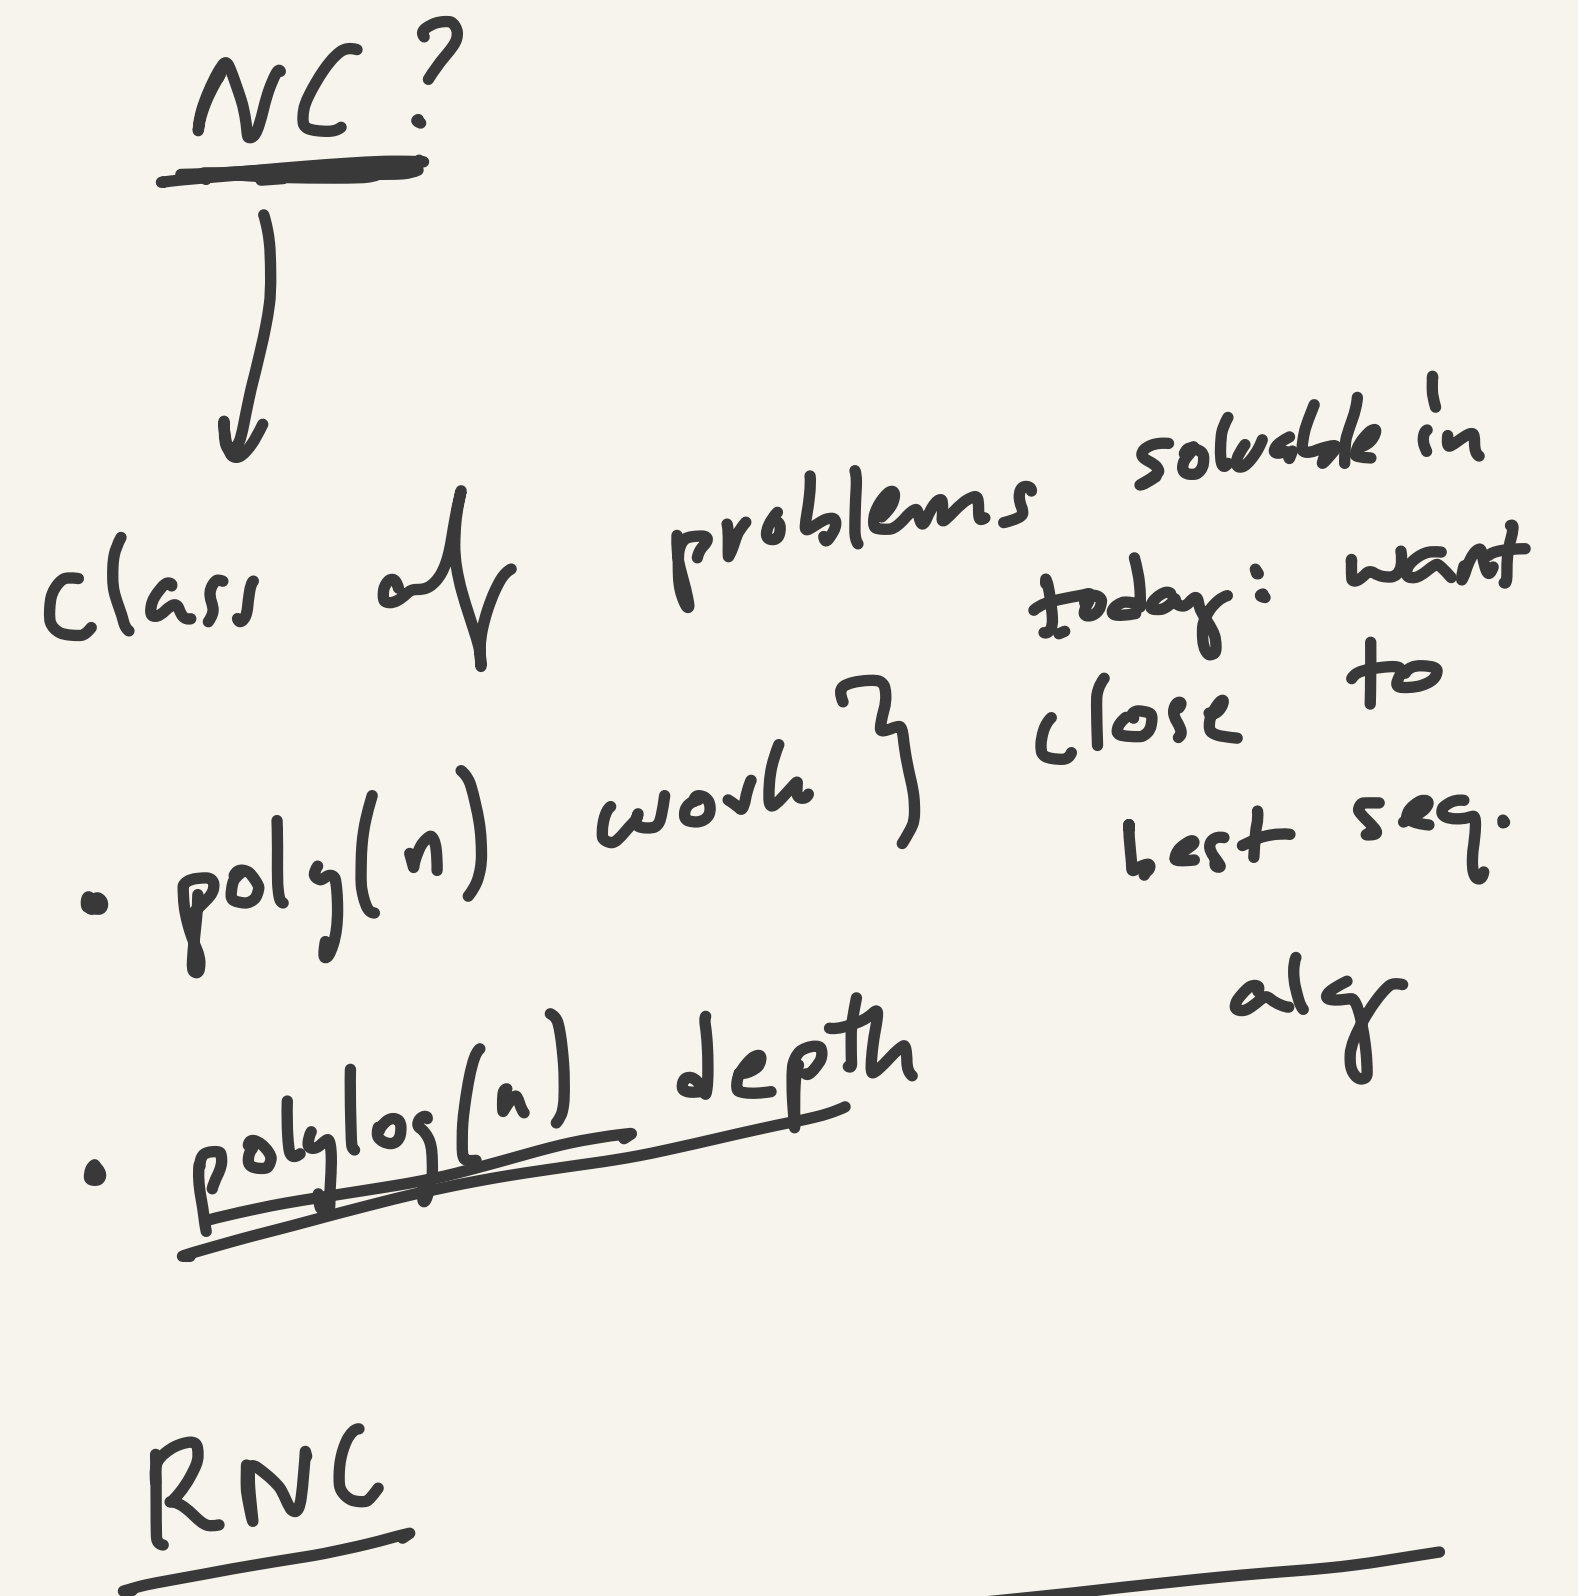 NC?
class of problems solvable in
• poly(n) work }
today: want
close to
best seq.
alg
• polylog(n) depth
RNC